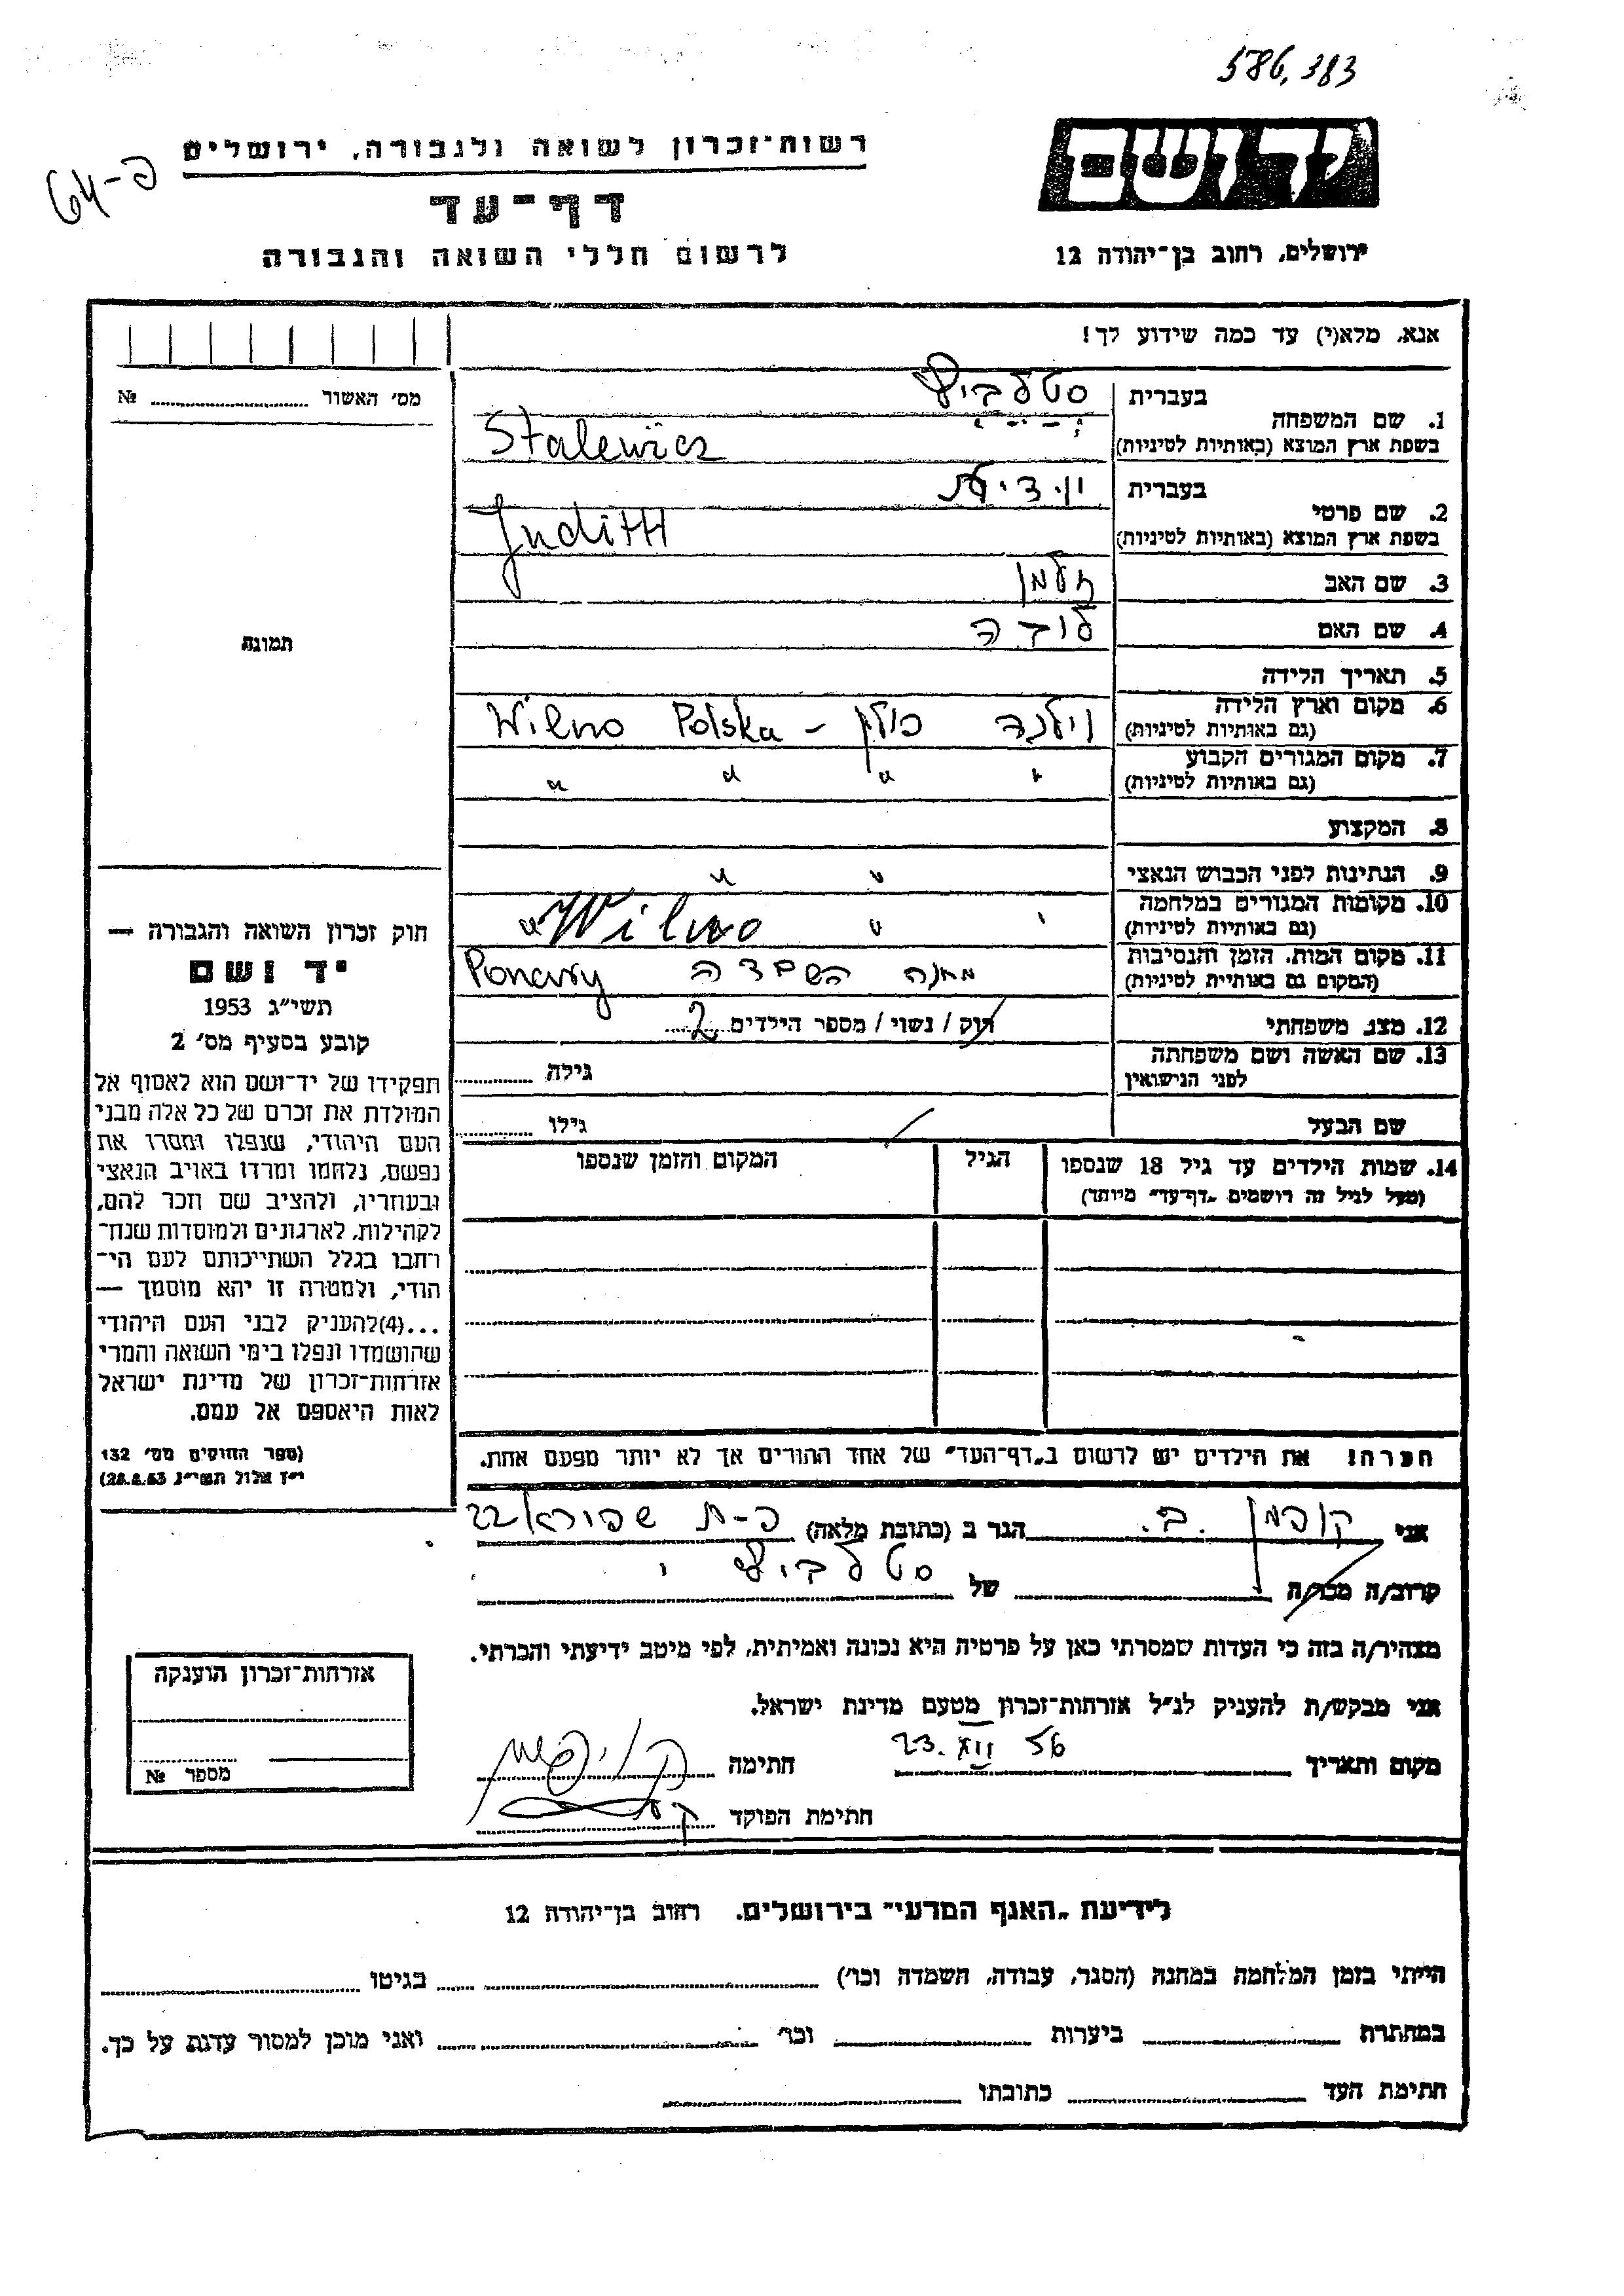 586,383
רשות־זכרון לשואה ולגבורה, ירושלים
יד ושם
64-פ
דף־עד
לרשום חללי השואה והגבורה
ירושלים, רחוב בן־יהודה 12
אנא, מלא(י) עד כמה שידוע לך!
מס׳ האשור № ........
1. שם המשפחה
בעברית סטלביץ
בשפת ארץ המוצא (באותיות לטיניות) Stalewicz
2. שם פרטי
בעברית יודית
בשפת ארץ המוצא (באותיות לטיניות) Judith
3. שם האב זלמן
4. שם האם
תמונה
5. תאריך הלידה
6. מקום וארץ הלידה
(גם באותיות לטיניות) וילנה פולין - Wilno Polska
7. מקום המגורים הקבוע
(גם באותיות לטיניות) " " " "
8. המקצוע
9. הנתינות לפני הכבוש הנאצי " "
10. מקומות המגורים במלחמה
(גם באותיות לטיניות) " " Wilno "
11. מקום המות, הזמן והנסיבות
(המקום גם באותיות לטיניות) מחנה השמדה Ponary
12. מצב משפחתי רוק / נשוי / מספר הילדים 2
13. שם האשה ושם משפחתה
לפני הנישואין גילה ........
שם הבעל גילו ........
14. שמות הילדים עד גיל 18 שנספו
(מעל לגיל זה רושמים „דף־עד״ מיוחד)
הגיל
המקום והזמן שנספו
חוק זכרון השואה והגבורה —
יד ושם
תשי״ג 1953
קובע בסעיף מס׳ 2
תפקידו של יד־ושם הוא לאסוף אל
המולדת את זכרם של כל אלה מבני
העם היהודי, שנפלו ומסרו את
נפשם, נלחמו ומרדו באויב הנאצי
ובעוזריו, ולהציב שם וזכר להם,
לקהילות, לארגונים ולמוסדות שנח־
רחבו בגלל השתייכותם לעם הי־
הודי, ולמטרה זו יהא מוסמך —
...(4)להעניק לבני העם היהודי
שהושמדו ונפלו בימי השואה והמרי
אזרחות־זכרון של מדינת ישראל
לאות היאספם אל עמם.
(ספר החוקים מס׳ 132
י״ז אלול תשי״ג 28.8.53)
הערה! את הילדים יש לרשום ב„דף־העד״ של אחד ההורים אך לא יותר מפעם אחת.
אני קופמן ב. הגר ב (כתובת מלאה) פ-ת שפירא 22
קרוב/ה מכר/ה של סטלביץ י
מצהיר/ה בזה כי העדות שמסרתי כאן על פרטיה היא נכונה ואמיתית, לפי מיטב ידיעתי והכרתי.
אני מבקש/ת להעניק לנ״ל אזרחות־זכרון מטעם מדינת ישראל.
מקום ותאריך 23. XII 56 חתימה
חתימת הפוקד
אזרחות־זכרון הוענקה
מספר №
לידיעת „האגף המדעי״ בירושלים. רחוב בן־יהודה 12
הייתי בזמן המלחמה במחנה (הסגר, עבודה, השמדה וכו׳) בגיטו
במחתרת ביערות וכו׳ ואני מוכן למסור עדות על כך.
חתימת העד כתובתו